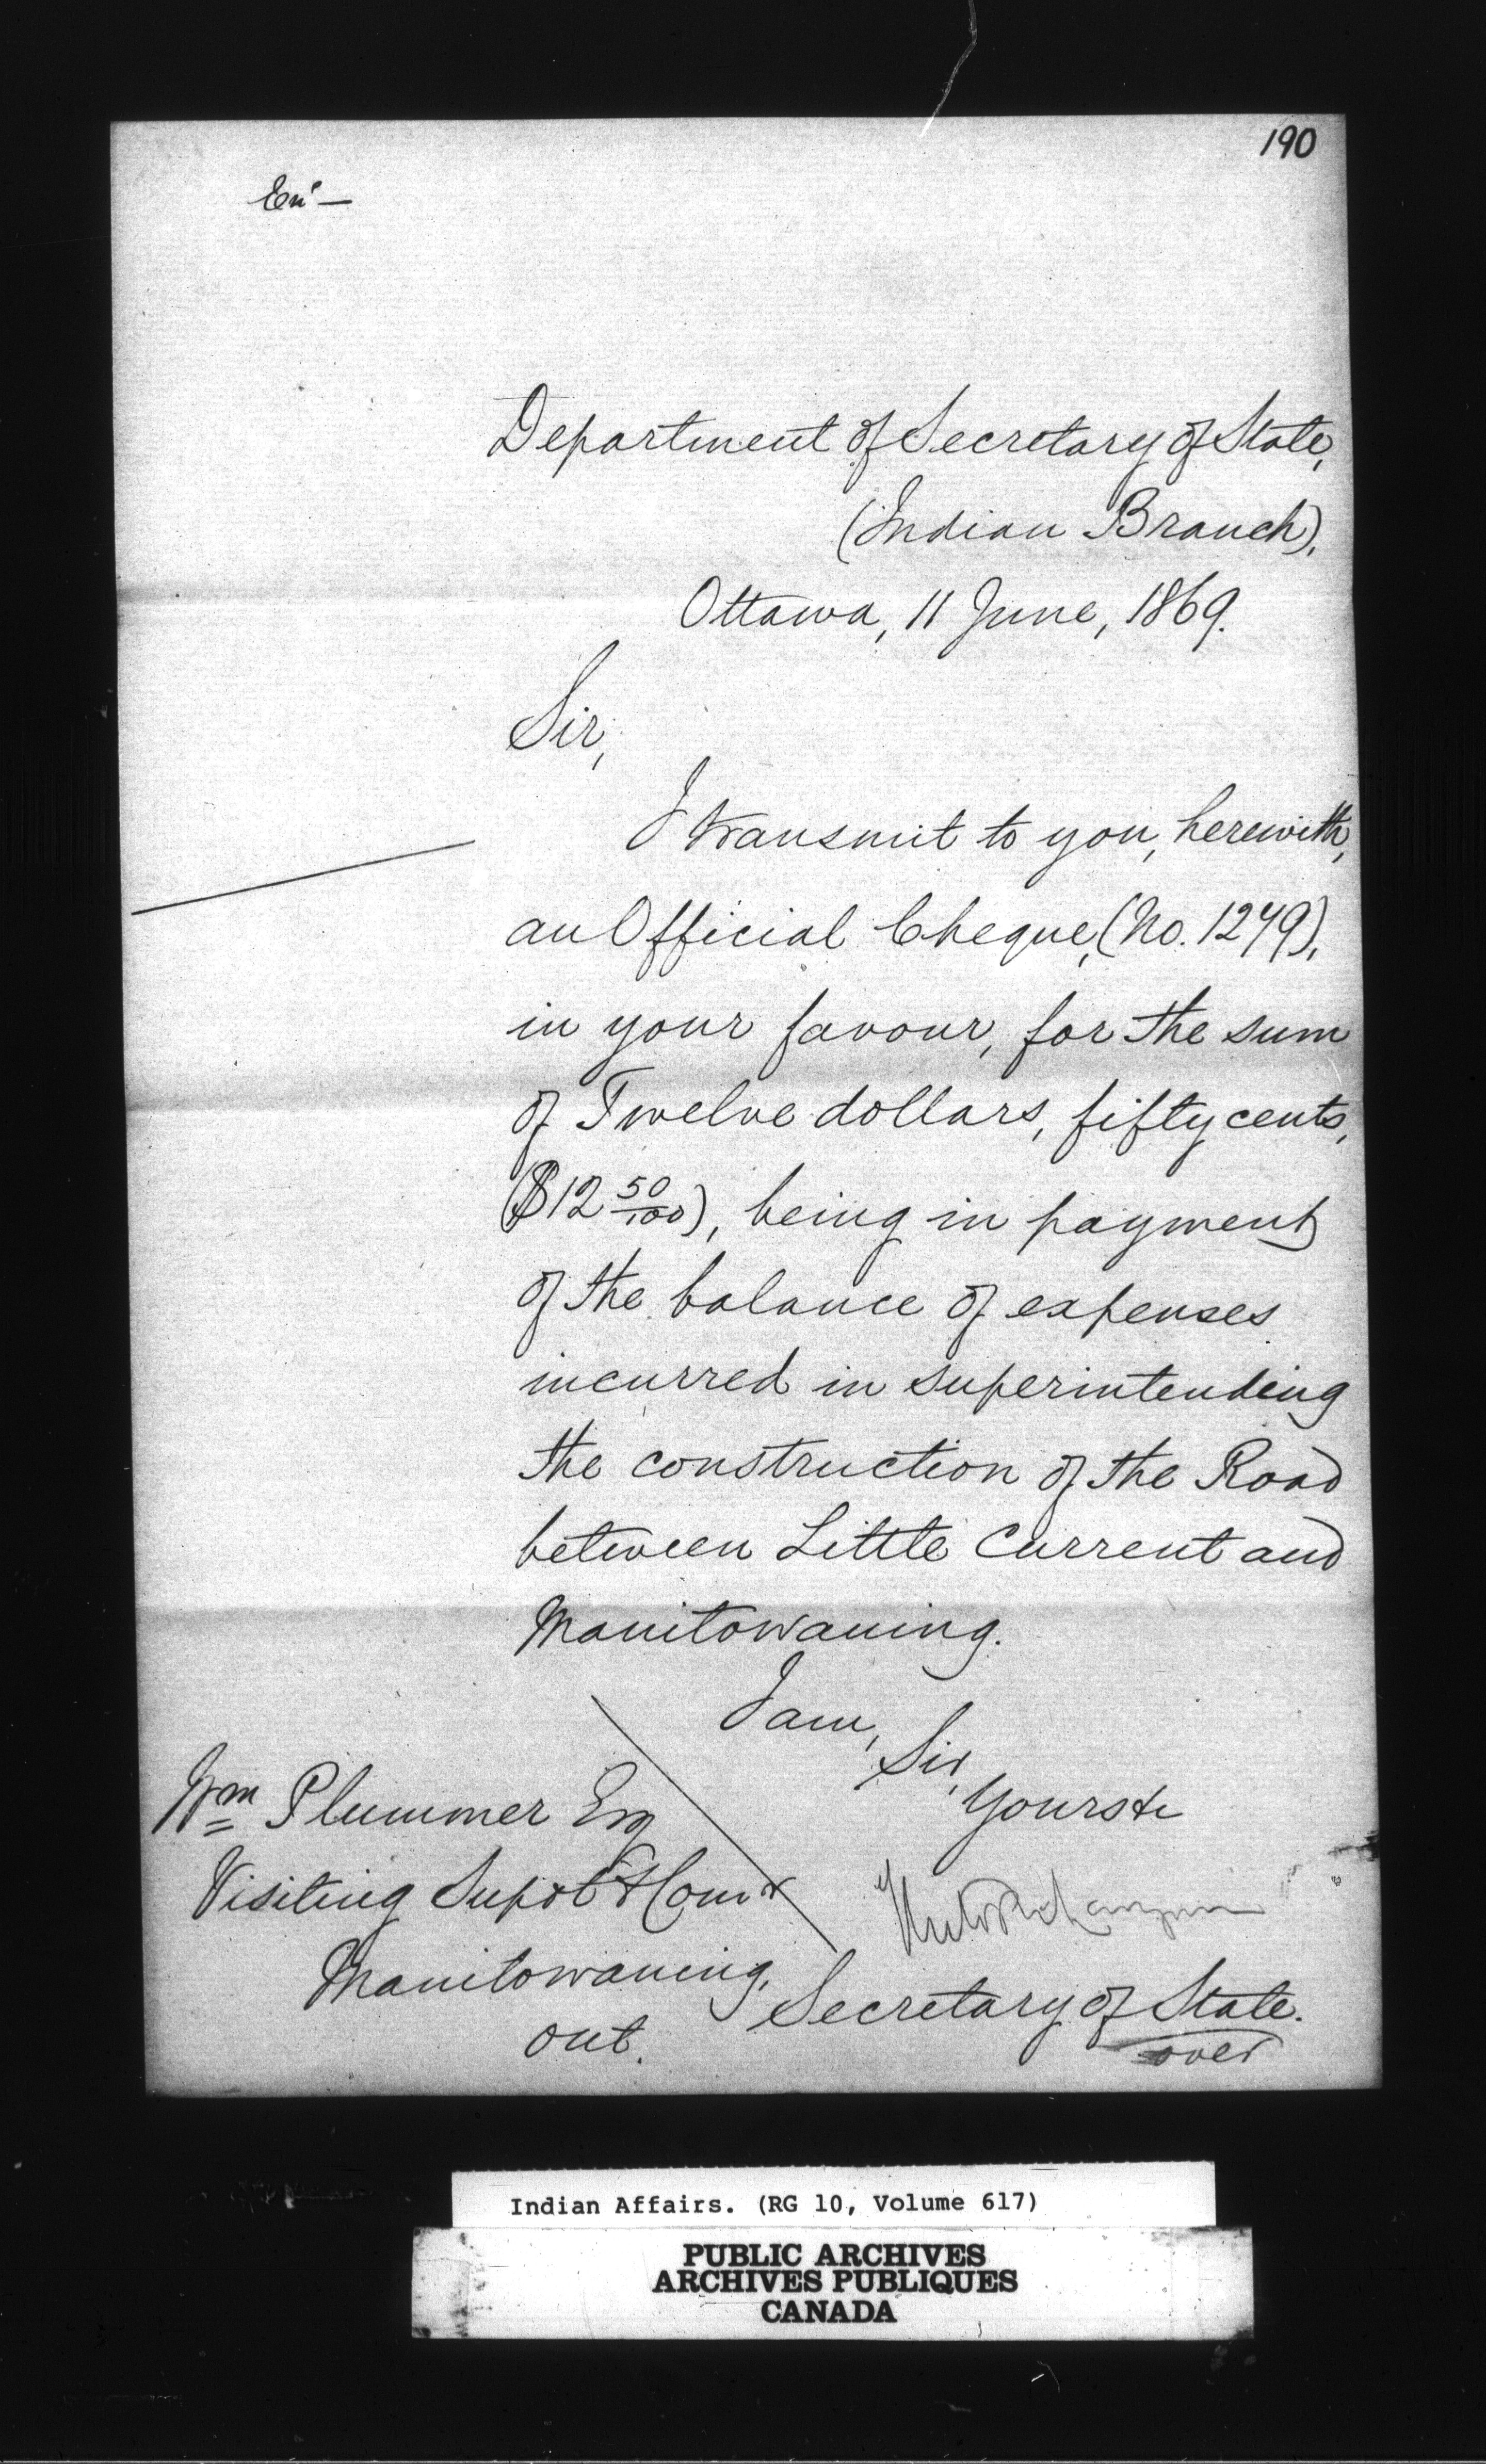 190
Department of Secretary of State,
(Indian Branch),
Ottawa, 11 June, 1869.
Sir,
I transmit to you, herewith,
an Official Cheque, (No. 1249),
in your favour, for the sum
of Twelve dollars, fifty cents,
($12 50/100), being in payment
of the balance of expenses
incurred in superintending
the construction of the Road
between Little Current and
Manitowaning.
I am,
Sir,
Yours &c
Wm Plummer Esq
Visiting Supdt & Comr
Manitowaning,
Ont.
Secretary of State.
over
Indian Affairs. (RG 10, Volume 617)
PUBLIC ARCHIVES
ARCHIVES PUBLIQUES
CANADA